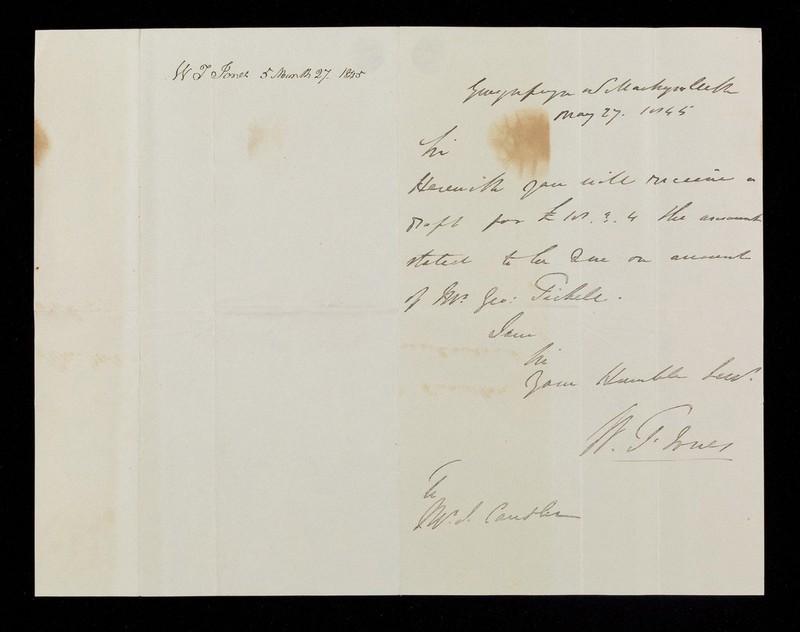 W T Jones 5 Month 27. 1845
Machynlleth
May 27. 1845
Sir
Herewith you will receive a
Draft for £ 18. 3. 4 the amount
stated to be due on account
of Mr. Geo: Tickle.
I am
Sir
Your Humble Servt.
W. T. Jones
To
Mr. J. Candler